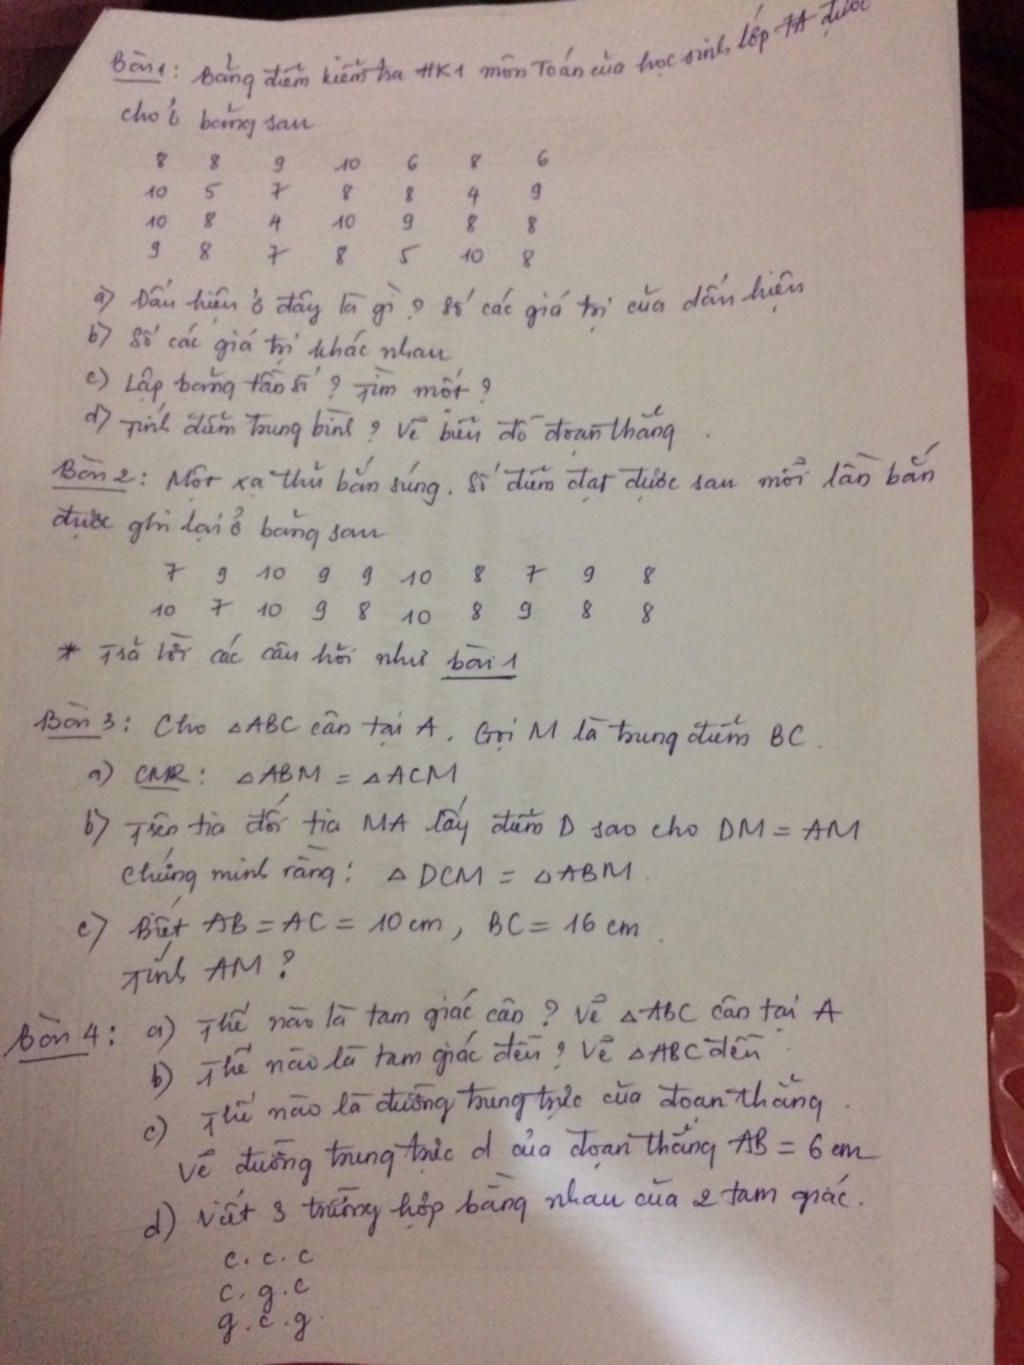 Bài 1: Bảng điểm kiểm tra HK1 môn Toán của học sinh lớp 7A được
cho ở bảng sau
8 8 9 10 6 8 6
10 5 7 8 8 4 9
10 8 4 10 9 8 8
9 8 7 8 5 10 8
a) Dấu hiệu ở đây là gì? Số các giá trị của dấu hiệu
b) Số các giá trị khác nhau
c) Lập bảng tần số? Tìm mốt?
d) Tính điểm trung bình? Vẽ biểu đồ đoạn thẳng.
Bài 2: Một xạ thủ bắn súng. Số điểm đạt được sau mỗi lần bắn
được ghi lại ở bảng sau
7 9 10 9 9 10 8 7 9 8
10 7 10 9 8 10 8 9 8 8
* Trả lời các câu hỏi như bài 1
Bài 3: Cho △ABC cân tại A. Gọi M là trung điểm BC.
a) CMR: △ABM = △ACM
b) Trên tia đối tia MA lấy điểm D sao cho DM = AM
Chứng minh rằng: △DCM = △ABM.
c) Biết AB = AC = 10 cm, BC = 16 cm.
Tính AM?
Bài 4: a) Thế nào là tam giác cân? Vẽ △ABC cân tại A
b) Thế nào là tam giác đều? Vẽ △ABC đều
c) Thế nào là đường trung trực của đoạn thẳng.
Vẽ đường trung trực d của đoạn thẳng AB = 6 cm
d) Viết 3 trường hợp bằng nhau của 2 tam giác.
c.c.c
c.g.c
g.c.g.